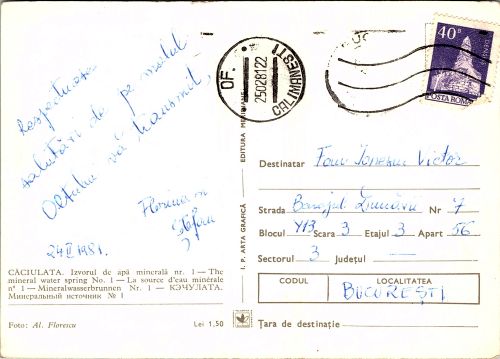 Respectuoase
salutări de pe malul
Oltului vă transmit,
Florina și
Ștefan
24 II 1981.
CĂCIULATA. Izvorul de apă minerală nr. 1 — The
mineral water spring No. 1 — La source d'eau minérale
n° 1 — Mineralwasserbrunnen Nr. 1 — КЭЧУЛАТА.
Минеральный источник № 1
Foto: Al. Florescu
Lei 1,50
I. P. ARTA GRAFICĂ
EDITURA MERIDIANE
OF.
25028122
CALIMANESTI
40B
POSTA ROMANA
Destinatar Fam Ionescu Victor
Strada Barajul Nr 7
Blocul Y13 Scara 3 Etajul 3 Apart 56
Sectorul 3 Județul —
CODUL LOCALITATEA
BUCUREȘTI
Țara de destinație